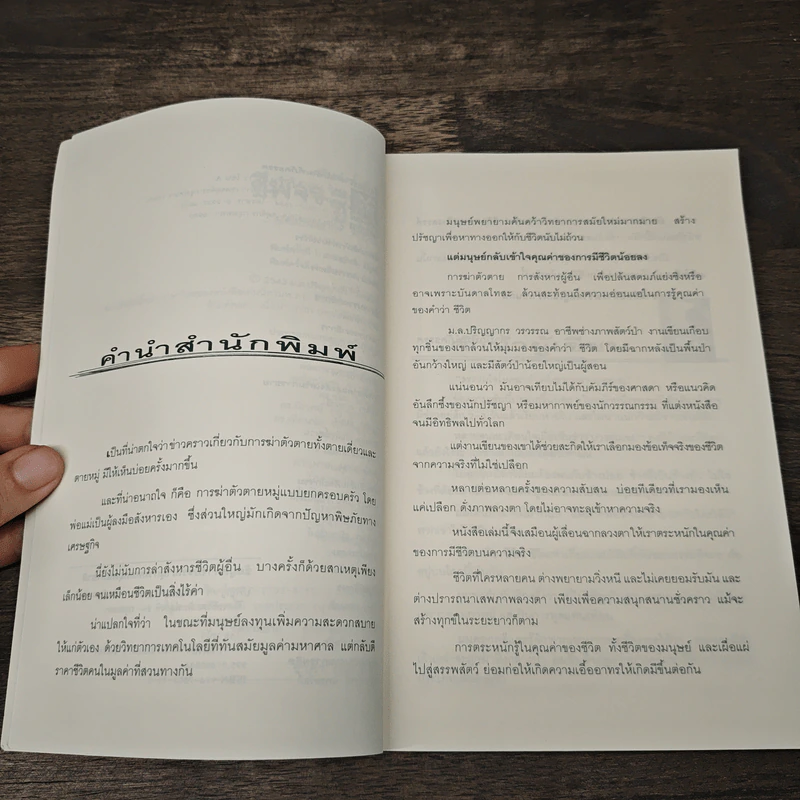 คำนำสำนักพิมพ์
เป็นที่น่าตกใจว่าข่าวคราวเกี่ยวกับการฆ่าตัวตายทั้งตายเดี่ยวและ
ตายหมู่ มีให้เห็นบ่อยครั้งมากขึ้น
และที่น่าอนาถใจ ก็คือ การฆ่าตัวตายหมู่แบบยกครอบครัว โดย
พ่อแม่เป็นผู้ลงมือสังหารเอง ซึ่งส่วนใหญ่มักเกิดจากปัญหาพิษภัยทาง
เศรษฐกิจ
นี่ยังไม่นับการล่าสังหารชีวิตผู้อื่น บางครั้งก็ด้วยสาเหตุเพียง
เล็กน้อย จนเหมือนชีวิตเป็นสิ่งไร้ค่า
น่าแปลกใจที่ว่า ในขณะที่มนุษย์ลงทุนเพิ่มความสะดวกสบาย
ให้แก่ตัวเอง ด้วยวิทยาการเทคโนโลยีที่ทันสมัยมูลค่ามหาศาล แต่กลับตี
ราคาชีวิตคนในมูลค่าที่สวนทางกัน
มนุษย์พยายามค้นคว้าวิทยาการสมัยใหม่มากมาย สร้าง
ปรัชญาเพื่อหาทางออกให้กับชีวิตนับไม่ถ้วน
แต่มนุษย์กลับเข้าใจคุณค่าของการมีชีวิตน้อยลง
การฆ่าตัวตาย การสังหารผู้อื่น เพื่อปล้นสดมภ์แย่งชิงหรือ
อาจเพราะบันดาลโทสะ ล้วนสะท้อนถึงความอ่อนแอในการรู้คุณค่า
ของคำว่า ชีวิต
ม.ล.ปริญญากร วรวรรณ อาชีพช่างภาพสัตว์ป่า งานเขียนเกือบ
ทุกชิ้นของเขาล้วนให้มุมมองของคำว่า ชีวิต โดยมีฉากหลังเป็นพื้นป่า
อันกว้างใหญ่ และมีสัตว์ป่าน้อยใหญ่เป็นผู้สอน
แน่นอนว่า มันอาจเทียบไม่ได้กับคัมภีร์ของศาสดา หรือแนวคิด
อันลึกซึ้งของนักปรัชญา หรือมหากาพย์ของนักวรรณกรรม ที่แต่งหนังสือ
จนมีอิทธิพลไปทั่วโลก
แต่งานเขียนของเขาได้ช่วยสะกิดให้เราเลือกมองข้อเท็จจริงของชีวิต
จากความจริงที่ไม่ใช่เปลือก
หลายต่อหลายครั้งของความสับสน บ่อยทีเดียวที่เรามองเห็น
แค่เปลือก ดั่งภาพลวงตา โดยไม่อาจทะลุเข้าหาความจริง
หนังสือเล่มนี้จึงเสมือนผู้เลื่อนฉากลวงตาให้เราตระหนักในคุณค่า
ของการมีชีวิตบนความจริง
ชีวิตที่ใครหลายคน ต่างพยายามวิ่งหนี และไม่เคยยอมรับมัน และ
ต่างปรารถนาเสพภาพลวงตา เพียงเพื่อความสนุกสนานชั่วคราว แม้จะ
สร้างทุกข์ในระยะยาวก็ตาม
การตระหนักรู้ในคุณค่าของชีวิต ทั้งชีวิตของมนุษย์ และเผื่อแผ่
ไปสู่สรรพสัตว์ ย่อมก่อให้เกิดความเอื้ออาทรให้เกิดมีขึ้นต่อกัน